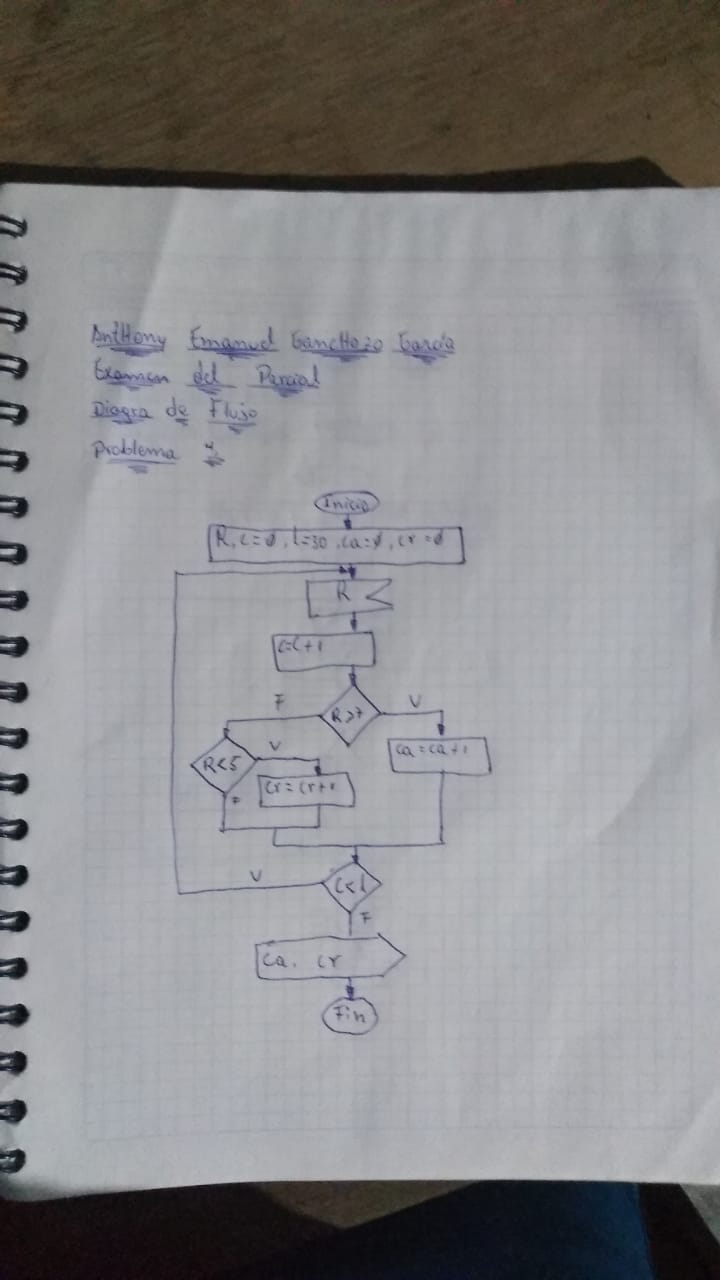 AntHony Emanuel GancHozo García
Examen del Parcial
Diagra de Flujo
Problema
Inicio
R, C=0, l=30, Ca=0, Cr=0
R
C=C+1
F
R>7
V
R<5
V
Ca=Ca+1
Cr=Cr+1
F
C<l
V
F
Ca, Cr
Fin